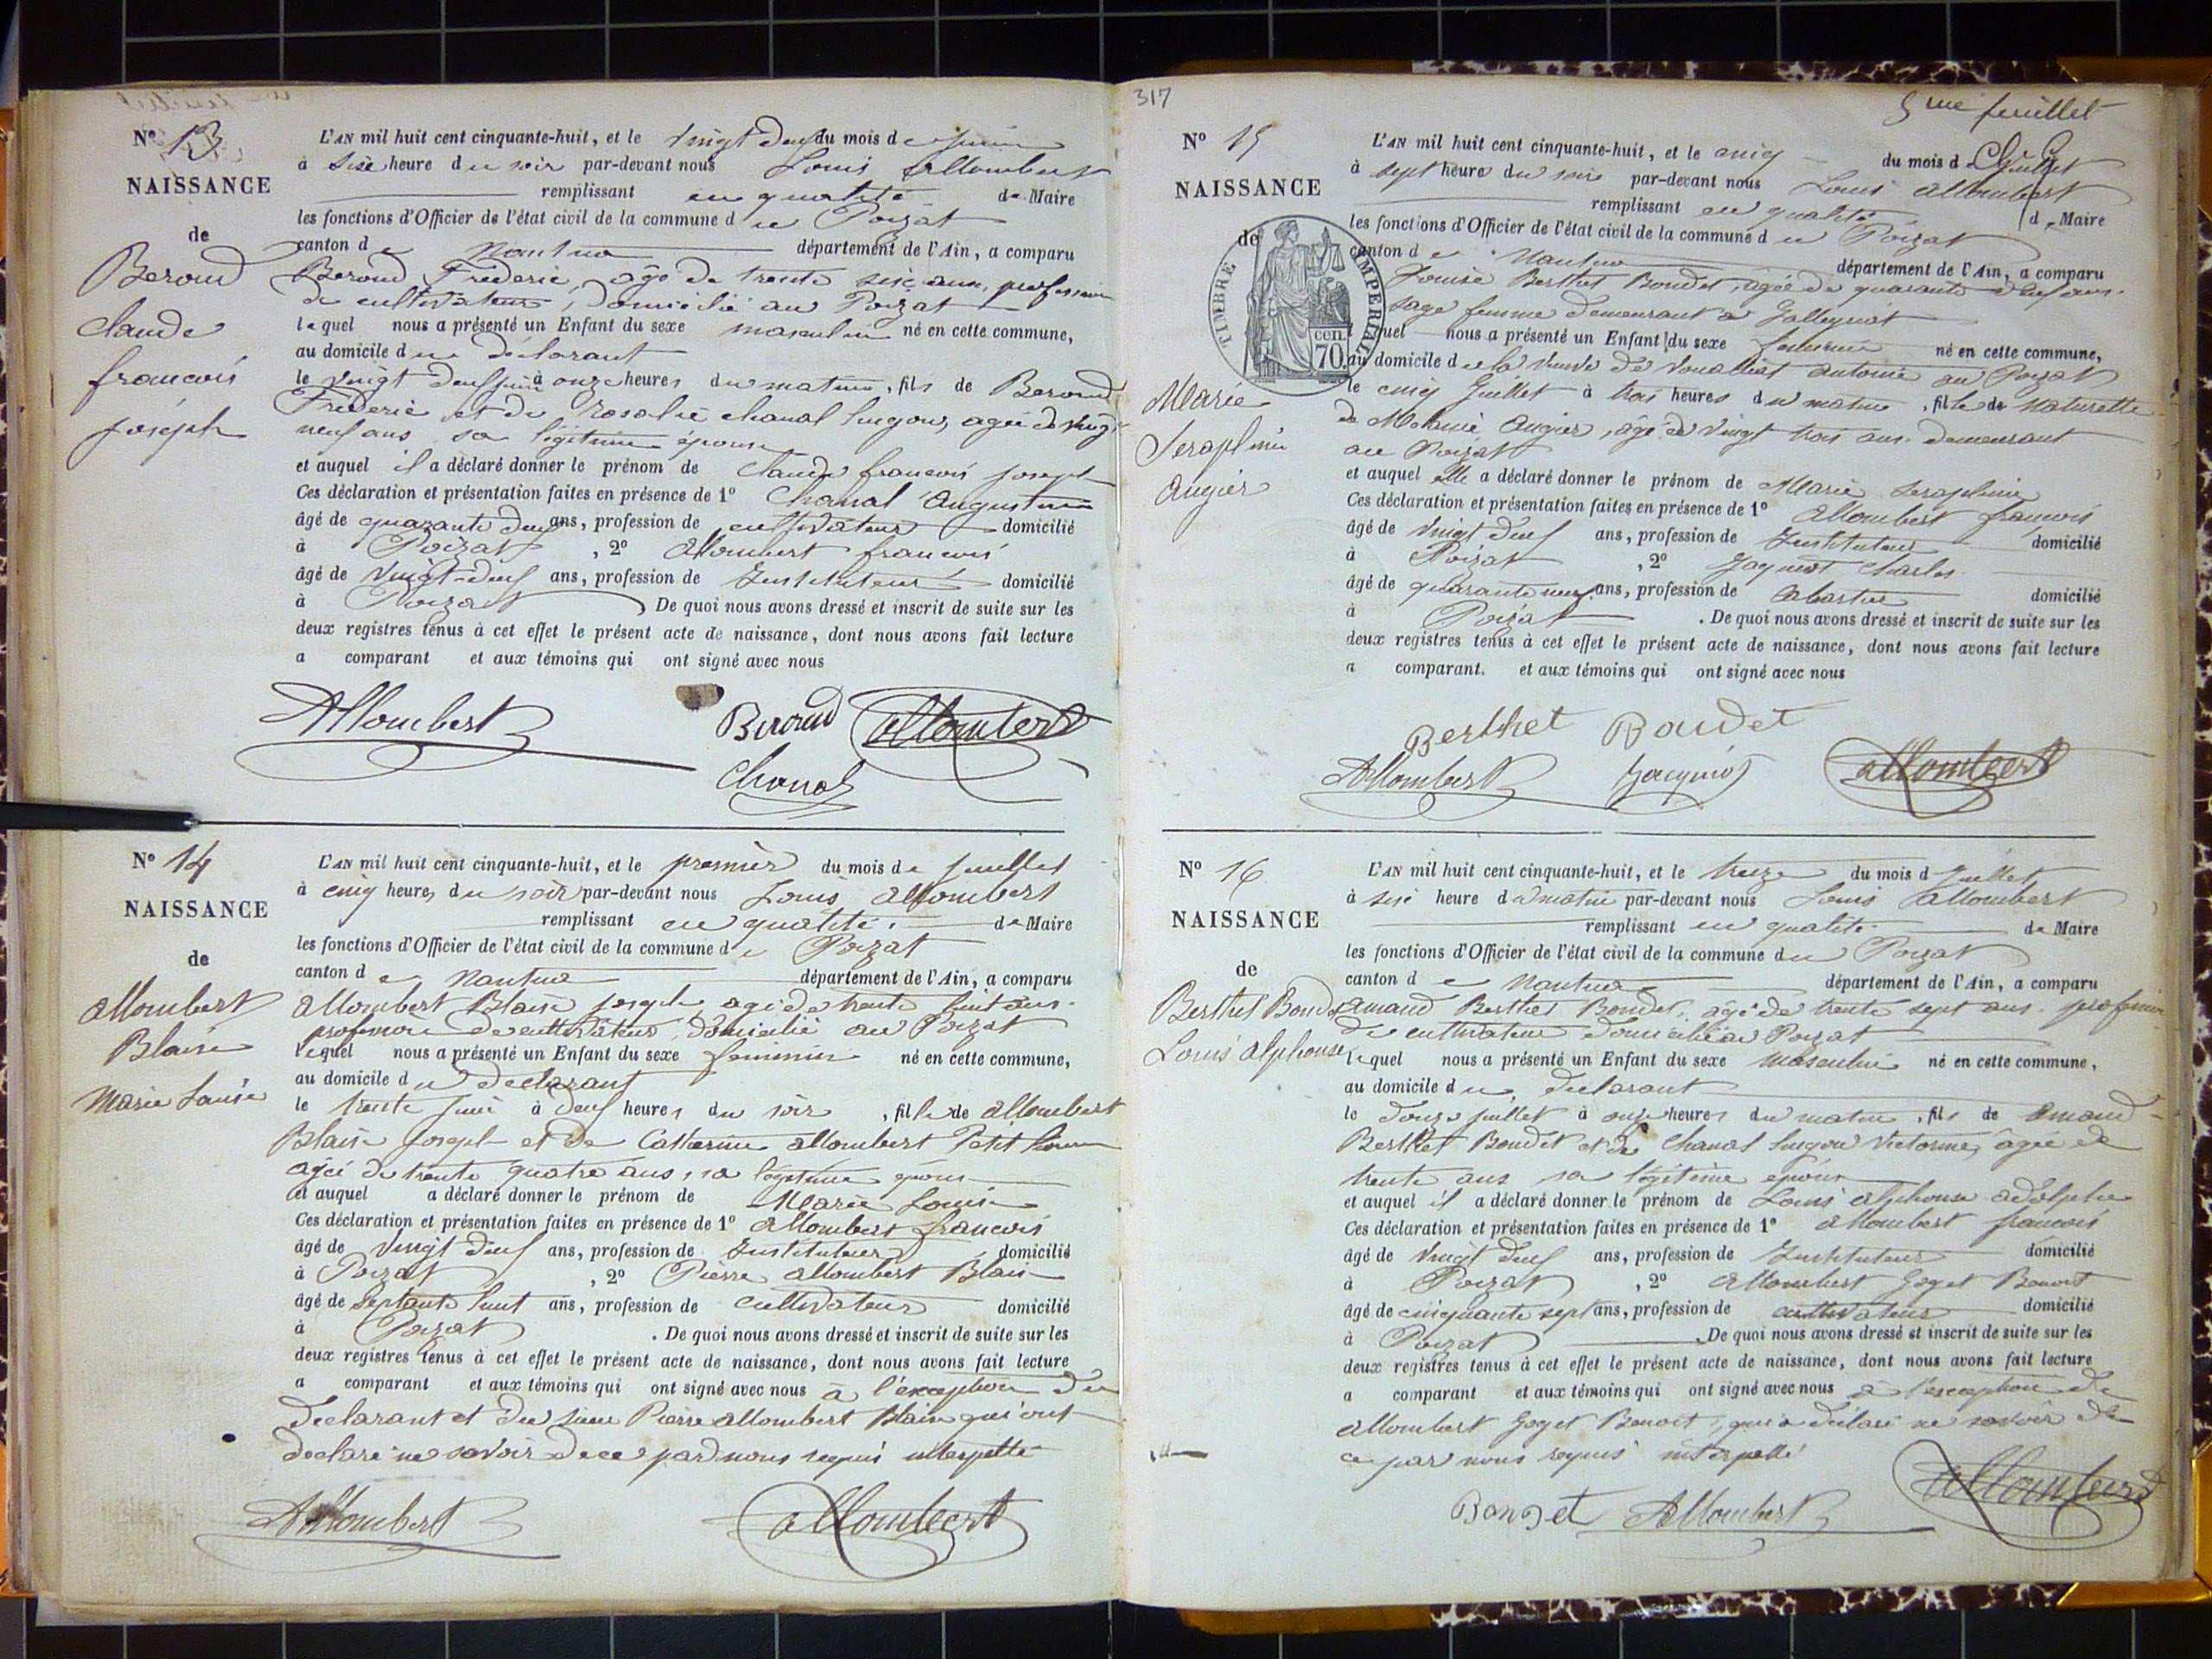 Nº 13
NAISSANCE
de
Beroud
Claude
francois
joseph
L'AN mil huit cent cinquante-huit, et le vingt deux du mois de juin
à sise heure du soir par-devant nous Louis Allombert
remplissant en qualité de Maire
les fonctions d'Officier de l'état civil de la commune du Poizat
canton de Nantua département de l'Ain, a comparu
Beroud Frederic, age de trente sise ans, profession
de cultivateur, domicilié au Poizat
lequel nous a présenté un Enfant du sexe masculin né en cette commune,
au domicile du déclarant
le vingt deux juin à onze heures du matin, fils de Beroud
Frederic et de Rosalie chanal lugon, agée de vingt
neuf ans sa légitime epouse
et auquel il a déclaré donner le prénom de Claude francois joseph
Ces déclaration et présentation faites en présence de 1º Chanal Augustin
âgé de quarante deux ans, profession de cultivateur domicilié
à Poizat, 2º Allombert francois
âgé de vingt-deux ans, profession de Instituteur domicilié
à Poizat De quoi nous avons dressé et inscrit de suite sur les
deux registres tenus à cet effet le présent acte de naissance, dont nous avons fait lecture
a comparant et aux témoins qui ont signé avec nous
Allombert Beroud Allombert
Chanal
Nº 14
NAISSANCE
de
Allombert
Blaise
Marie Louise
L'AN mil huit cent cinquante-huit, et le premier du mois de juillet
à cinq heures du soir par-devant nous Louis Allombert
remplissant en qualité de Maire
les fonctions d'Officier de l'état civil de la commune du Poizat
canton de Nantua département de l'Ain, a comparu
Allombert Blaise joseph agé de trente huit ans
profession de cultivateur, domicilié au Poizat
lequel nous a présenté un Enfant du sexe feminin né en cette commune,
au domicile du declarant
le trente juin à deux heures du soir, fille de Allombert
Blaise joseph et de Catherine allombert Petit
agée de trente quatre ans, sa légitime epouse
et auquel a déclaré donner le prénom de Marie Louise
Ces déclaration et présentation faites en présence de 1º Allombert francois
âgé de vingt deux ans, profession de Instituteur domicilié
à Poizat, 2º Pierre allombert Blaise
âgé de septante huit ans, profession de cultivateur domicilié
à Poizat. De quoi nous avons dressé et inscrit de suite sur les
deux registres tenus à cet effet le présent acte de naissance, dont nous avons fait lecture
a comparant et aux témoins qui ont signé avec nous à l'exception du
declarant et du sieur Pierre allombert Blaise qui ont
declaré ne savoir de ce par nous requis interpellé
Allombert Allombert
317
5me feuillet
Nº 15
NAISSANCE
de
TIMBRE IMPERIAL
70 cen.
Marie
Seraphine
Augier
L'AN mil huit cent cinquante-huit, et le cinq du mois de Juillet
à sept heure du soir par-devant nous Louis Allombert
remplissant en qualité de Maire
les fonctions d'Officier de l'état civil de la commune du Poizat
canton de Nantua département de l'Ain, a comparu
Louise Berthet Bondet, agée de quarante deux ans
sage femme demeurant à Jalleyriat
quel nous a présenté un Enfant du sexe feminin né en cette commune,
au domicile de la veuve de antoine au Poizat
le cinq Juillet à trois heures du matin, fille de naturelle
de Melanie Augier, agé de vingt trois ans demeurant
au Poizat
et auquel elle a déclaré donner le prénom de Marie Seraphine
Ces déclaration et présentation faites en présence de 1º Allombert francois
âgé de vingt deux ans, profession de Instituteur domicilié
à Poizat, 2º Jaquiot Charles
âgé de quarante neuf ans, profession de domicilié
à Poizat. De quoi nous avons dressé et inscrit de suite sur les
deux registres tenus à cet effet le présent acte de naissance, dont nous avons fait lecture
a comparant. et aux témoins qui ont signé avec nous
Berthet Bondet
Allombert Jacquiot Allombert
Nº 16
NAISSANCE
de
Berthet Bondet
Louis alphonse
L'AN mil huit cent cinquante-huit, et le treize du mois d Juillet
à sise heure du matin par-devant nous Louis Allombert
remplissant en qualité de Maire
les fonctions d'Officier de l'état civil de la commune du Poizat
canton de Nantua département de l'Ain, a comparu
amand Berthet Bondet, agé de trente sept ans profession
de cultivateur domicilié au Poizat
lequel nous a présenté un Enfant du sexe masculin né en cette commune,
au domicile du declarant
le douze juillet à onze heures du matin, fils de amand
Berthet Bondet et de Chanal lugon victorine, agée de
trente ans sa légitime epouse
et auquel il a déclaré donner le prénom de Louis alphonse adolphe
Ces déclaration et présentation faites en présence de 1º Allombert francois
âgé de vingt deux ans, profession de Instituteur domicilié
à Poizat, 2º Allombert Goget Benoit
âgé de cinquante sept ans, profession de cultivateur domicilié
à Poizat. De quoi nous avons dressé et inscrit de suite sur les
deux registres tenus à cet effet le présent acte de naissance, dont nous avons fait lecture
a comparant et aux témoins qui ont signé avec nous à l'exception de
allombert Goget Benoit, qui a déclaré ne savoir de
ce par nous requis interpellé
Bondet Allombert Allombert